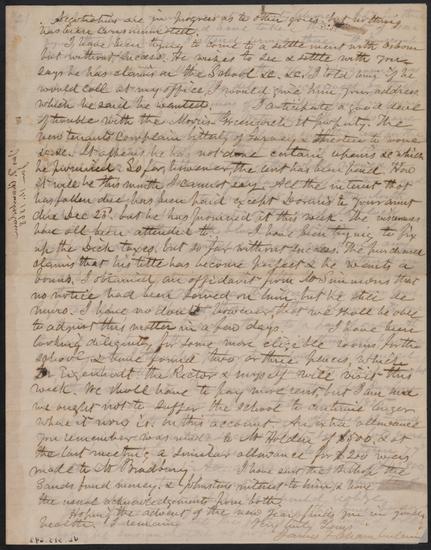 Negotiations are in progress as to other places, but nothing
has been consummated.
I have been trying to come to a settlement with
but without success. He wishes to see & settle with you
says he has claims on the School &c. &c. I told him if he
would call at my office, I would give him your address
which he said he wanted. I anticipate a good deal
of trouble with the Morris Greenwich St property. The
new tenants complain bitterly of & threaten to
It appears he has not done certain repairs &c which
he promised. So far, however, the rent has been paid. How
it will be this month I cannot say. All the interest that
has fallen due has been paid except to your aunt
due Dec 25th but he has promised it this week. The insurances
have all been attended to. I have been trying to fix
up the Dick taxes, but so far without success. The purchaser
claims that his title has become perfect & he wants a
bonus. I obtained an affidavit from Mr Simmons that
no notice had been served on him, but he still
I have no doubt however, that we shall be able
to adjust this matter in a few days. I have been
looking diligently for some more eligible rooms for the
school & have found two or three places, which
Dr Eigenbrodt the Rector & myself will visit this
week. We shall have to pay more rent, but I am sure
we ought not to suffer the school to continue longer
where it now is. on this account. An extra allowance
you remember was made to Mr Holden of $500, & at
the last meeting a similar allowance for $200 was
made to Mr Bradbury. I have sent the Bishop the
Sands fund money, & Johnstons interest to him, & have
the usual acknowledgements from both.
Hoping the advent of the new year finds you in good
health. I remain
Very truly Yours
James